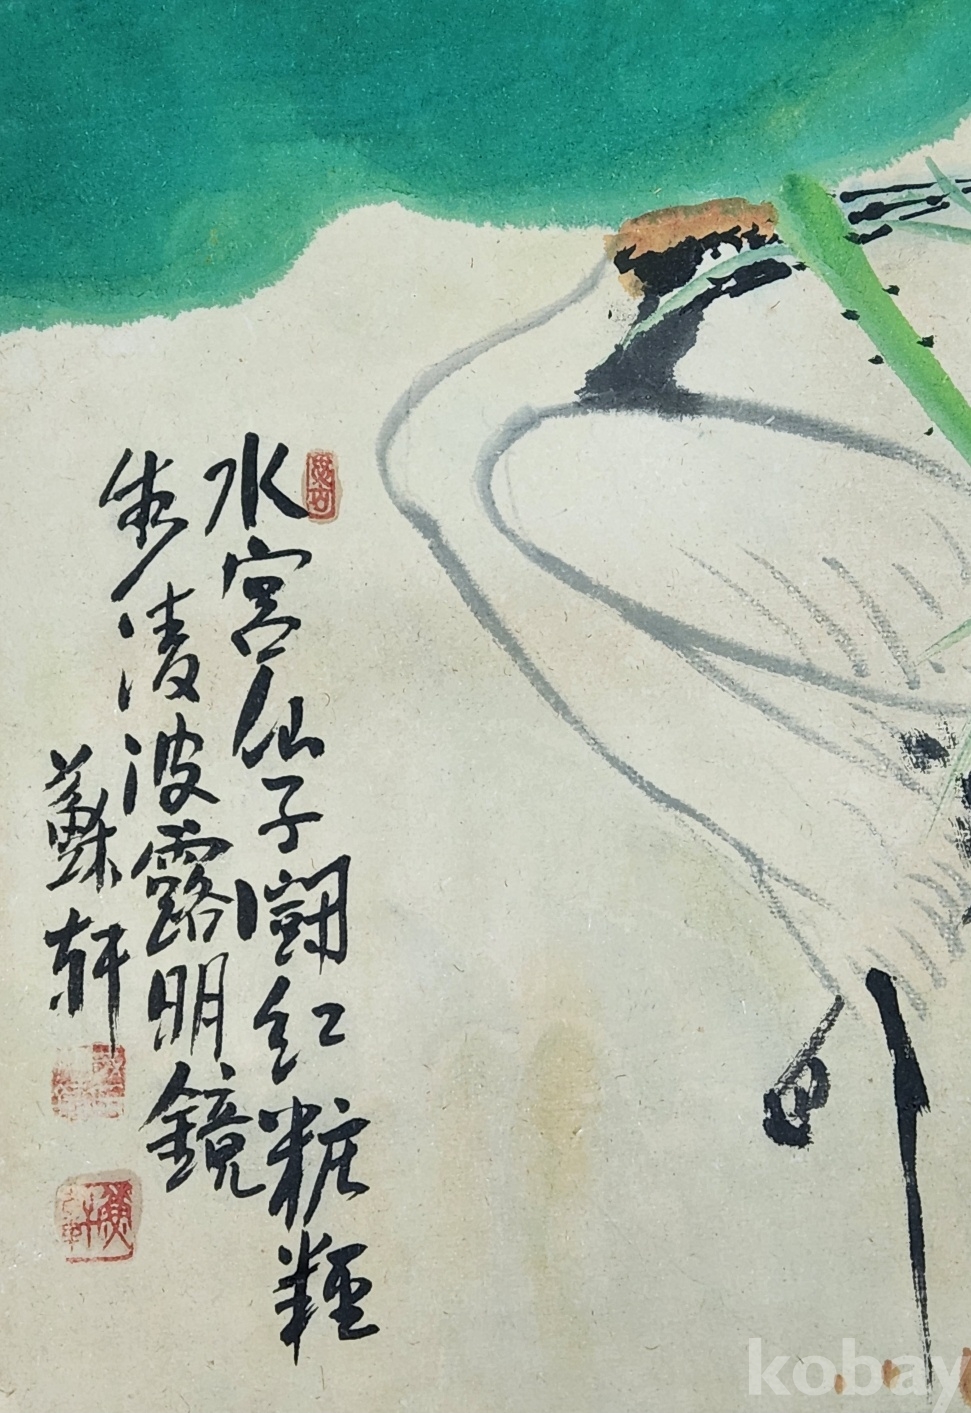 水宮仙子闘紅粧輕
步凌波露明鏡
蘇軒
kobay